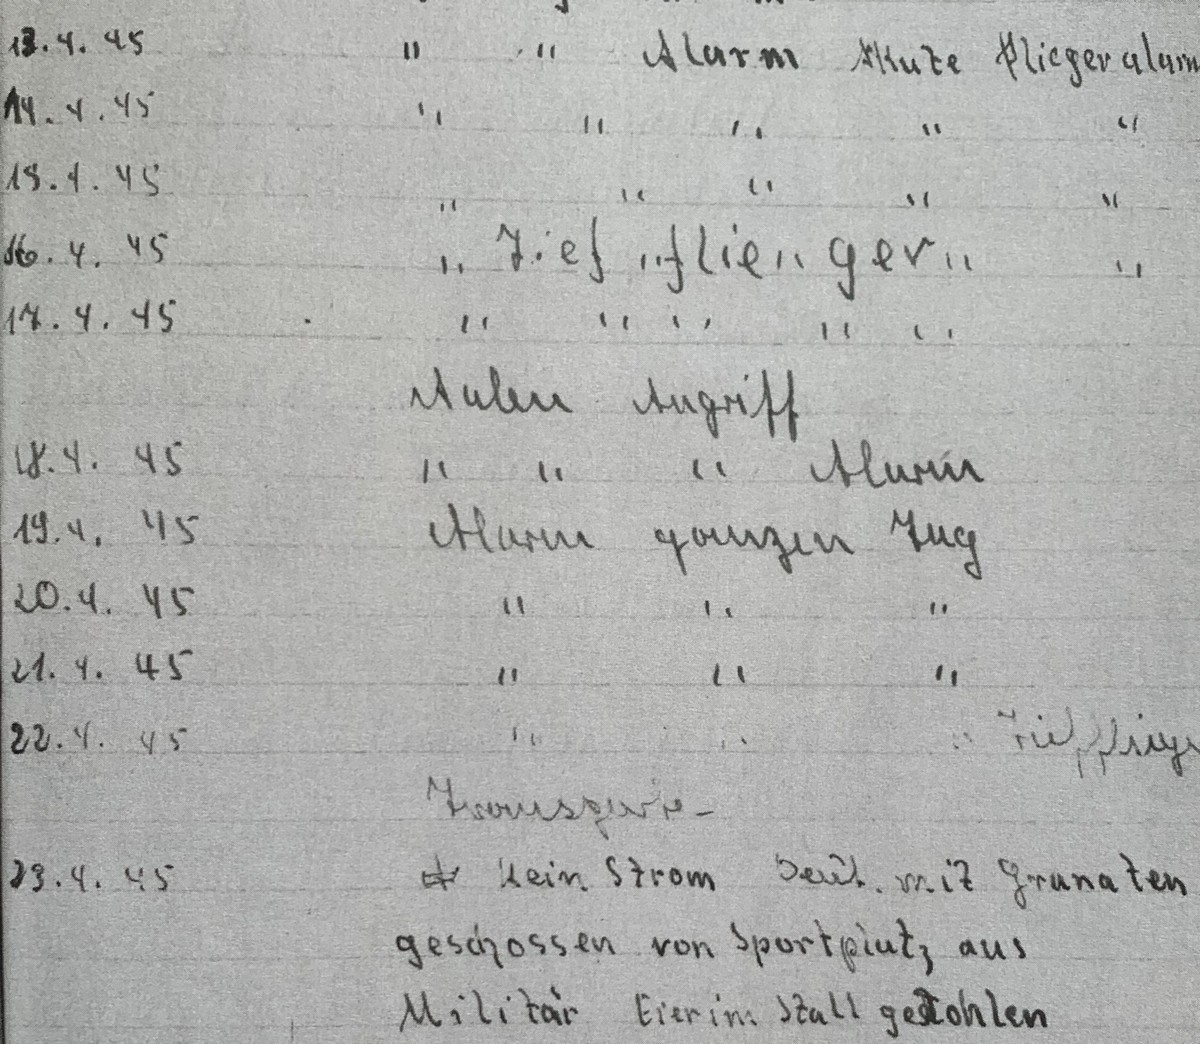 13.4.45 " " Alarm Akute Fliegeralarm
14.4.45 " " " " "
15.4.45 " " " " "
16.4.45 " Tief " flie " ger " "
17.4.45 " " " " "
Aalen Angriff
18.4.45 " " " Alarm
19.4.45 Alarm ganzen Tag
20.4.45 " " "
21.4.45 " " "
22.4.45 " " " Tiefflieger
Transport-
23.4.45 kein Strom Deut. mit Granaten
geschossen von Sportplatz aus
Militär Eier im Stall gestohlen